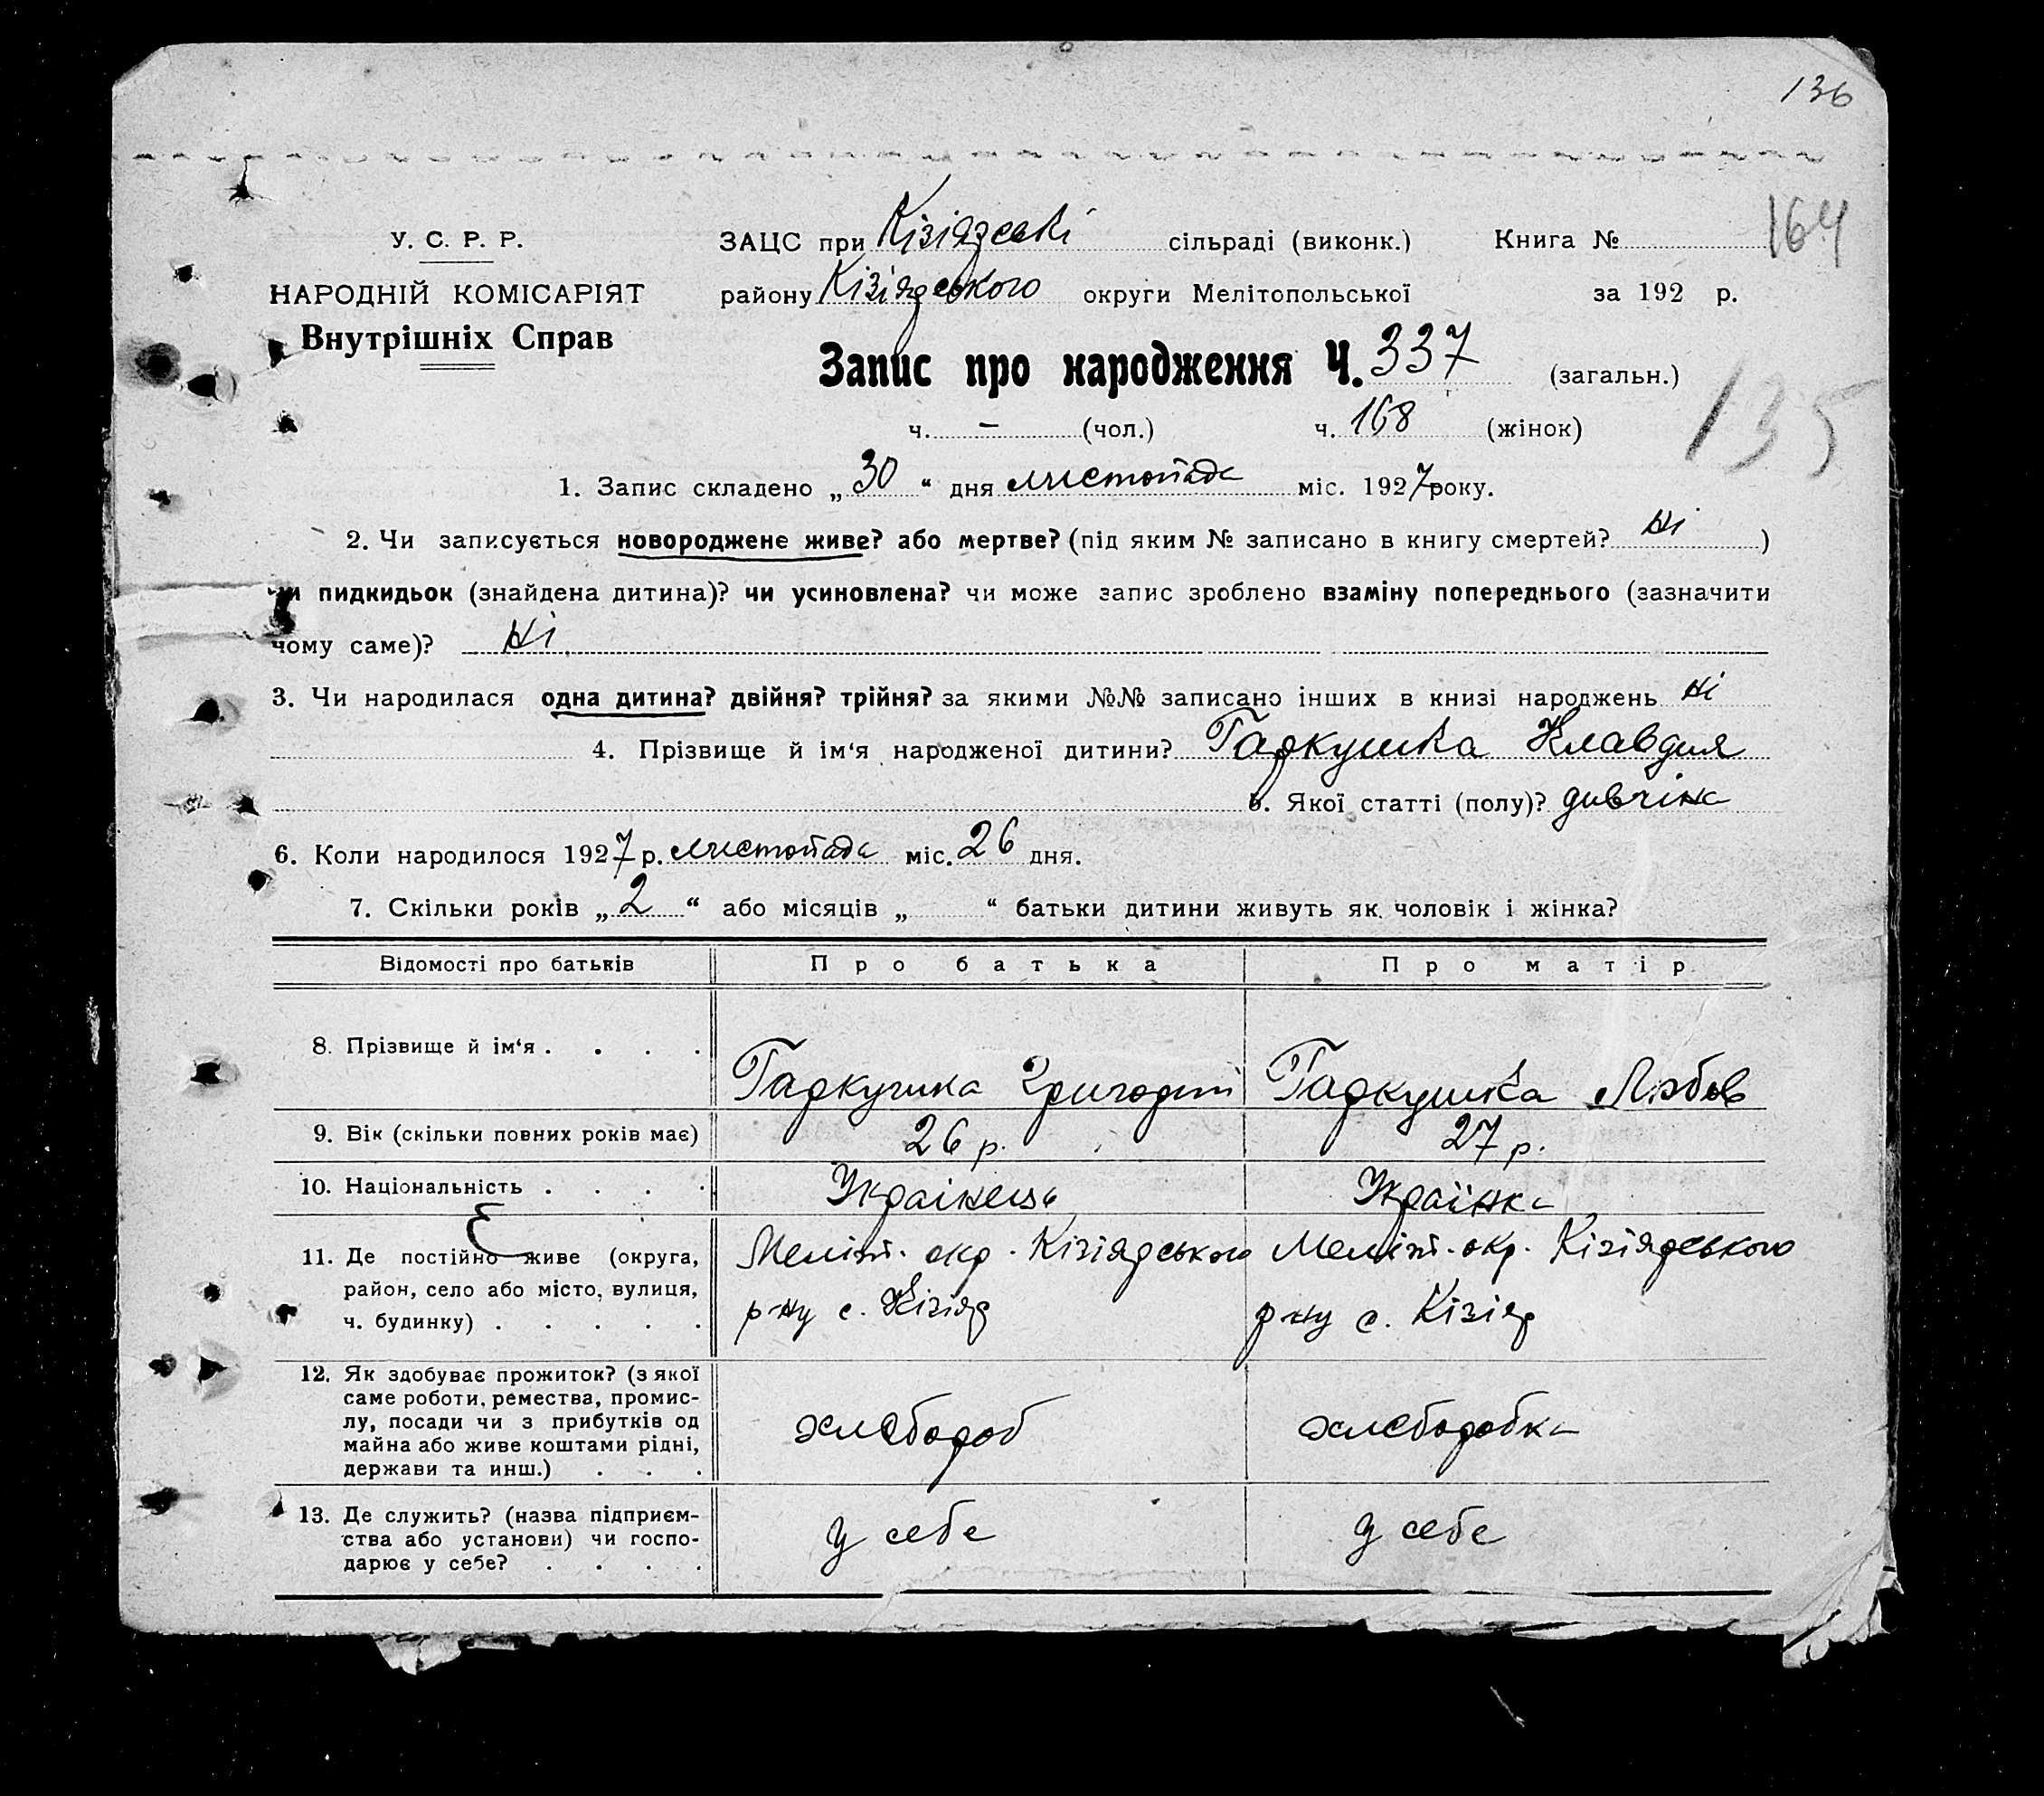 136
164
У. С. Р. Р.
НАРОДНІЙ КОМІСАРІЯТ
Внутрішніх Справ
ЗАЦС при Кізіядські сільраді (виконк.) Книга №
району Кізіядського округи Мелітопольської за 192 р.
Запис про народження Ч. 337 (загальн.)
135
ч. — (чол.) ч. 168 (жінок)
1. Запис складено „30“ дня листопада міс. 1927 року.
2. Чи записується новороджене живе? або мертве? (під яким № записано в книгу смертей? Ні)
чи пидкидьок (знайдена дитина)? чи усиновлена? чи може запис зроблено взаміну попереднього (зазначити
чому саме)? Ні
3. Чи народилася одна дитина? двійня? трійня? за якими №№ записано інших в книзі народжень Ні
4. Прізвище й ім‘я народженої дитини? Гаркушка Клавдия
5. Якої статті (полу)? дивчіна
6. Коли народилося 1927 р. листопада міс. 26 дня.
7. Скільки років „2“ або місяців „ “ батьки дитини живуть як чоловік і жінка?
Відомості про батьків Про батька Про матір
8. Прізвище й ім‘я . . . . Гаркушка Григорій Гаркушка Любов
9. Вік (скільки повних років має) 26 р. 27 р.
10. Національність . . . . Украінець Украінка
11. Де постійно живе (округа, Меліт. окр. Кізіядського Меліт. окр. Кізіядського
район, село або місто, вулиця, р-ну с. Кізіяр р-ну с. Кізіяр
ч. будинку) . . . . .
12. Як здобуває прожиток? (з якої
саме роботи, ремества, промис-
лу, посади чи з прибутків од хлебороб хлеборобка
майна або живе коштами рідні,
держави та инш.) . . .
13. Де служить? (назва підприєм-
ства або установи) чи госпо- у себе у себе
дарює у себе? . . . .